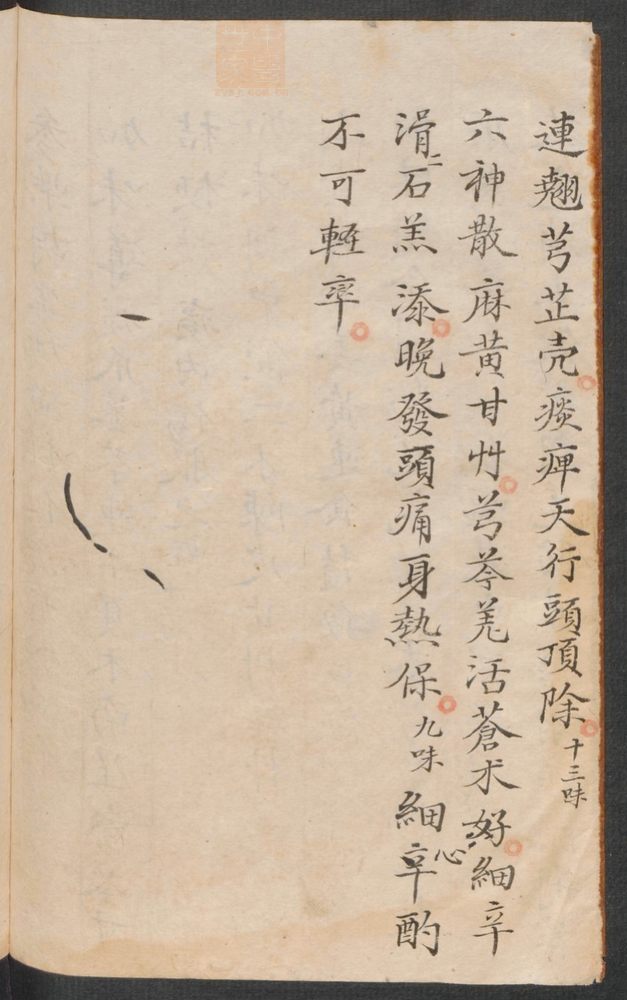 連翹芎芷壳痰痺天行頭頂除十三味
六神散麻黄甘艸芎芩羌活蒼朮好細辛
滑二石羔添晚發頭痛身熱保九味細辛心酌
不可輕率